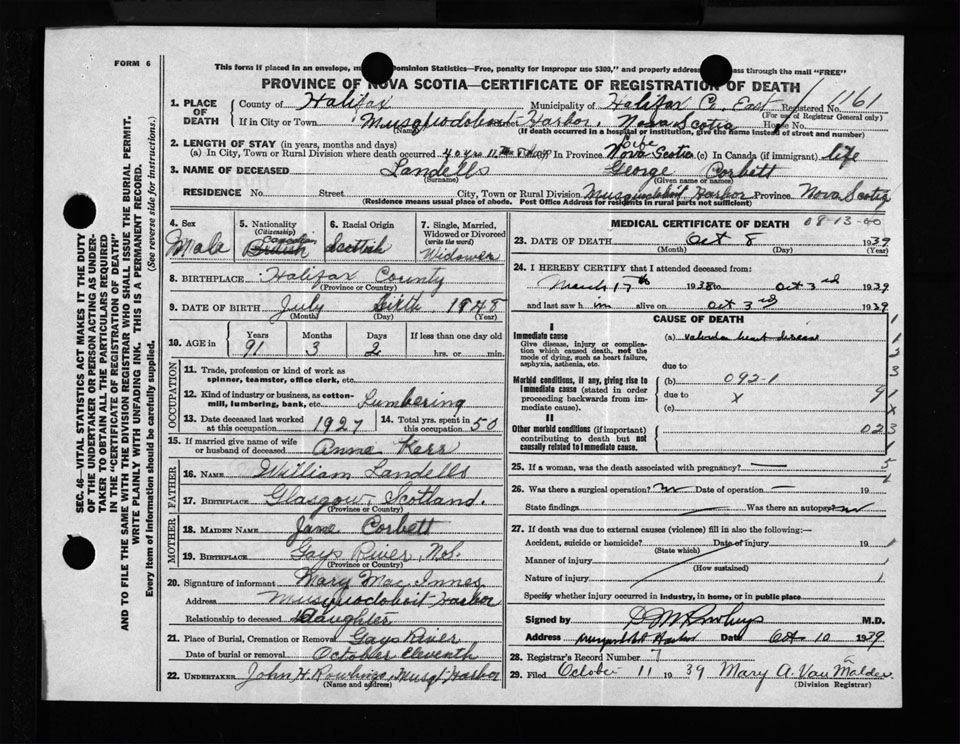 FORM 6
This form if placed in an envelope, m Dominion Statistics—Free, penalty for improper use $300," and properly address ss through the mail "FREE"
PROVINCE OF NOVA SCOTIA—CERTIFICATE OF REGISTRATION OF DEATH
1. PLACE OF DEATH County of Halifax Municipality of Halifax Co. East Registered No. 1161
(For use of Registrar General only)
If in City or Town Musquodoboit Harbor, Nova Scotia House No.
(Name) (If death occurred in a hospital or institution, give the name instead of street and number)
2. LENGTH OF STAY (in years, months and days)
(a) In City, Town or Rural Division where death occurred 40 yrs 11 In Province Life Nova Scotia (c) In Canada (if immigrant) life
3. NAME OF DECEASED Landells George Corbett
(Surname) (Given name or names)
RESIDENCE No. Street City, Town or Rural Division Musquodoboit Harbor Province Nova Scotia
(Residence means usual place of abode. Post Office Address for residents in rural parts not sufficient)
4. Sex Male
5. Nationality (Citizenship) Canadian British
6. Racial Origin Scottish
7. Single, Married, Widowed or Divorced (write the word) Widower
8. BIRTHPLACE Halifax County
(Province or Country)
9. DATE OF BIRTH July Sixth 1848
(Month) (Day) (Year)
10. AGE in Years 91 Months 3 Days 2 If less than one day old hrs. or min.
OCCUPATION
11. Trade, profession or kind of work as spinner, teamster, office clerk, etc.
12. Kind of industry or business, as cotton-mill, lumbering, bank, etc. Lumbering
13. Date deceased last worked at this occupation 1927 14. Total yrs. spent in this occupation 50
15. If married give name of wife or husband of deceased Anna Kerr
FATHER
16. NAME William Landells
17. BIRTHPLACE Glasgow, Scotland.
(Province or Country)
MOTHER
18. MAIDEN NAME Jane Corbett
19. BIRTHPLACE Gays River, N.S.
(Province or Country)
20. Signature of informant Mary Mac Innes
Address Musquodoboit Harbor
Relationship to deceased Daughter
21. Place of Burial, Cremation or Removal Gays River
Date of burial or removal October eleventh
22. UNDERTAKER John H. Rowlings, Musqt. Harbor
(Name and address)
MEDICAL CERTIFICATE OF DEATH 08-13-00
23. DATE OF DEATH Oct 8 1939
(Month) (Day) (Year)
24. I HEREBY CERTIFY that I attended deceased from:
March 17th 1938 to Oct 3rd 1939
and last saw him alive on Oct 3rd 1939
CAUSE OF DEATH
I
Immediate cause (a) valvular heart disease
Give disease, injury or complication which caused death, not the mode of dying, such as heart failure, asphyxia, asthenia, etc.
due to
Morbid conditions, if any, giving rise to immediate cause (stated in order proceeding backwards from immediate cause). (b) 092-1
due to x
(c)
II
Other morbid conditions (if important) contributing to death but not causally related to immediate cause. 023
25. If a woman, was the death associated with pregnancy?
26. Was there a surgical operation? no Date of operation 19
State findings Was there an autopsy no
27. If death was due to external causes (violence) fill in also the following:—
Accident, suicide or homicide? Date of injury 19
(State which)
Manner of injury
(How sustained)
Nature of injury
Specify whether injury occurred in industry, in home, or in public place
Signed by M.D.
Address Harbor Date Oct 10 1939
28. Registrar's Record Number 7
29. Filed October 11 1939 Mary A. Van Malder
(Division Registrar)
SEC. 46—VITAL STATISTICS ACT MAKES IT THE DUTY
OF THE UNDERTAKER OR PERSON ACTING AS UNDER-
TAKER TO OBTAIN ALL THE PARTICULARS REQUIRED
IN THE "CERTIFICATE OF REGISTRATION OF DEATH"
AND TO FILE THE SAME WITH THE DIVISION REGISTRAR WHO SHALL ISSUE THE BURIAL PERMIT.
WRITE PLAINLY WITH UNFADING INK. THIS IS A PERMANENT RECORD.
Every item of information should be carefully supplied. (See reverse side for instructions.)